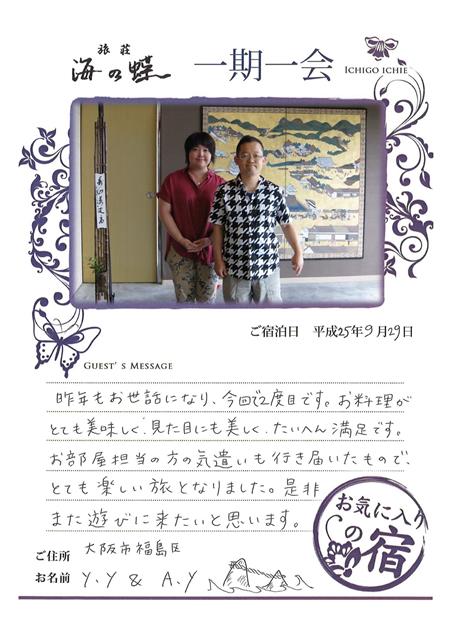 旅荘
海の蝶
一期一会
ICHIGO ICHIE
ご宿泊日 平成25年9月29日
GUEST'S MESSAGE
昨年もお世話になり、今回で2度目です。お料理が
とても美味しく、見た目にも美しく、たいへん満足です。
お部屋担当の方の気遣いも行き届いたもので、
とても楽しい旅となりました。是非
また遊びに来たいと思います。
お気に入り
の宿
ご住所 大阪市福島区
お名前 Y.Y & A.Y